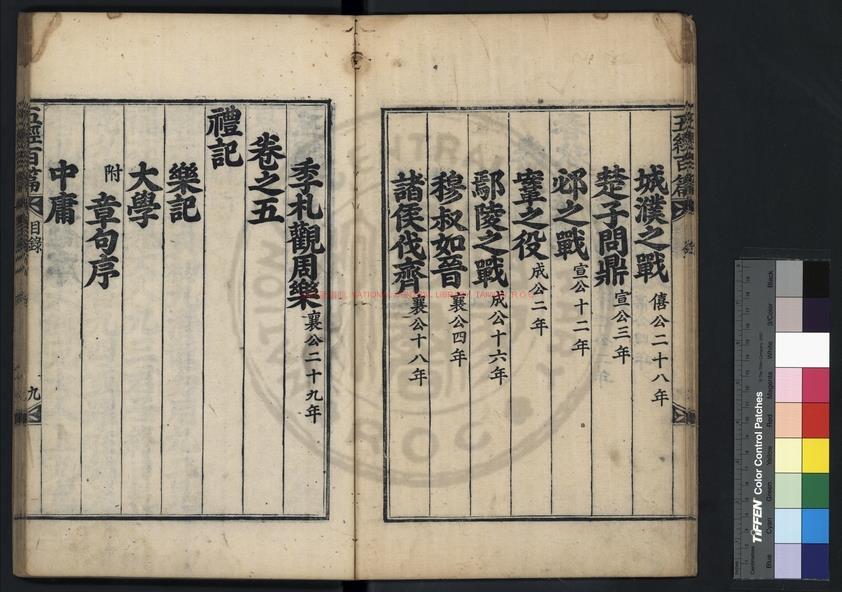 城濮之戰 僖公二十八年
楚子問鼎 宣公三年
邲之戰 宣公十二年
鞌之役 成公二年
鄢陵之戰 成公十六年
穆叔如晉 襄公四年
諸侯伐齊 襄公十八年
季札觀周樂 襄公二十九年
卷之五
禮記
樂記
大學
附 章句序
中庸
五經百篇
目錄
九
TIFFEN Color Control Patches
Blue
Cyan
Green
Yellow
Red
Magenta
White
3/Color
Black